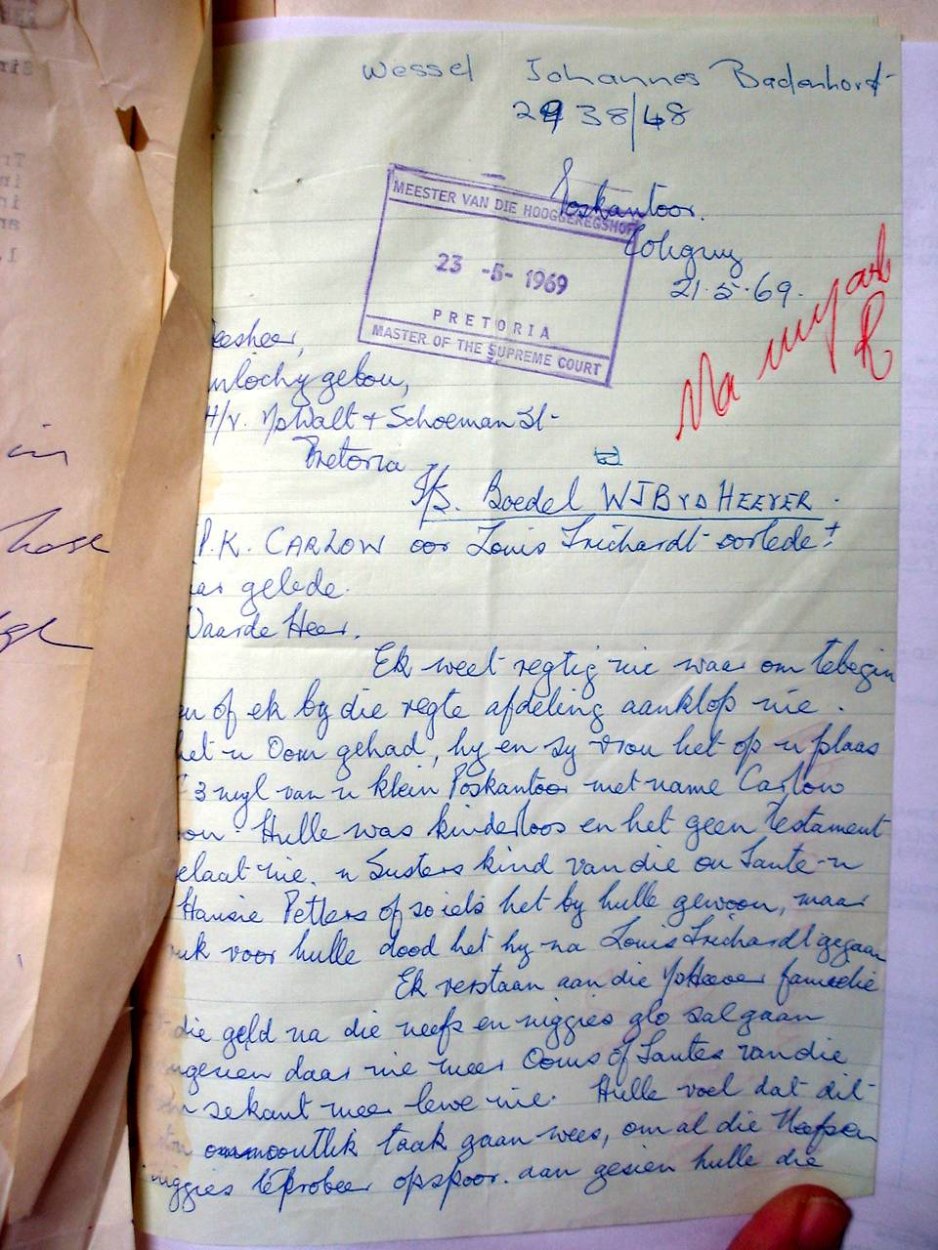 Wessel Johannes Badenhorst
2938/48
Poskantoor.
MEESTER VAN DIE HOOGGEREGSHOF
Coligny
23 -5- 1969
21.5.69.
PRETORIA
MASTER OF THE SUPREME COURT
Na
eesheer,
nlochy gebou,
H/v. vd Walt + Schoeman St-
Pretoria
I/S. Boedel WJB VD HEEVER.
P.K. CARLOW oor Louis Trichardt oorlede ±
aar gelede.
Waarde Heer,
Ek weet regtig nie waar om tebegin
en of ek by die regte afdeling aanklop nie.
het 'n Oom gehad, hy en sy vrou het op 'n plaas
3 myl van 'n klein Poskantoor met name Carlow
oon. Hulle was kinderloos en het geen Testament
elaat nie. 'n Susters kind van die ou Tante 'n
Hansie Petters of so iets het by hulle gewoon, maar
ruk voor hulle dood het hy na Louis Trichardt gegaan
Ek verstaan aan die vd Heever familie
die geld na die neefs en niggies glo sal gaan
ngesien daar nie meer Ooms of Tantes van die
se kant meer lewe nie. Hulle voel dat dit
'n moontlik taak gaan wees, om al die Neefs en
niggies te probeer opspoor. aan gesien hulle die